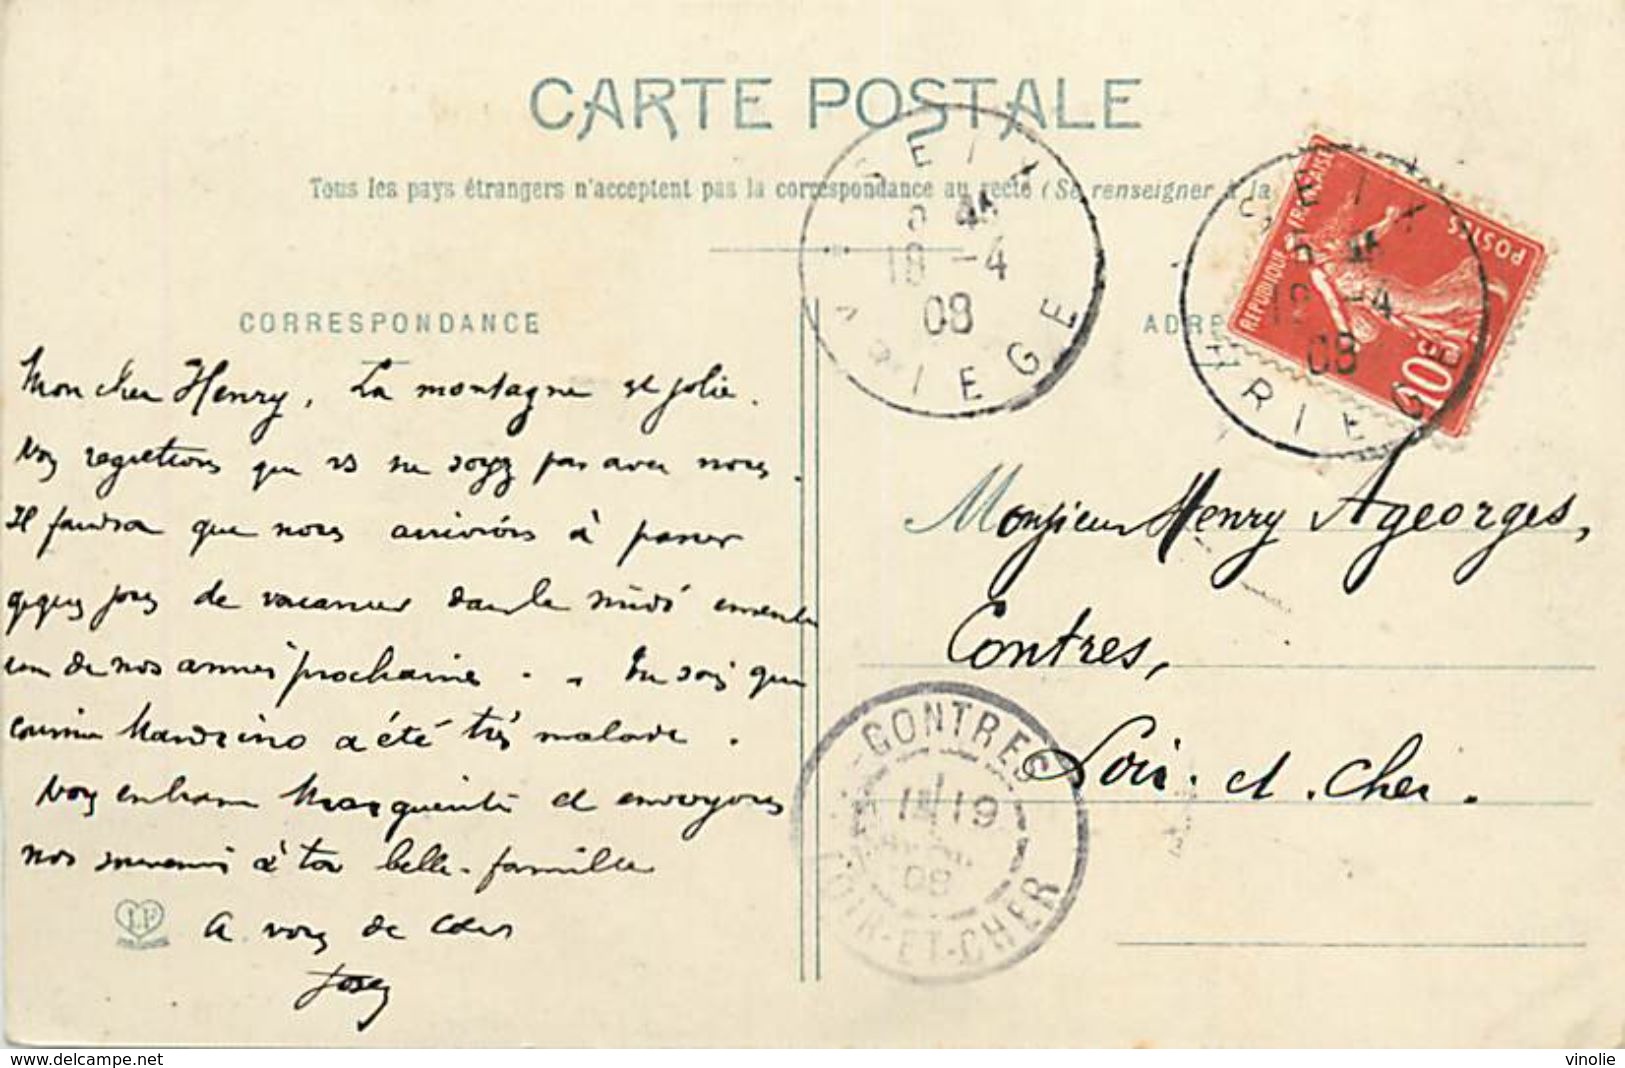 CARTE POSTALE
Tous les pays étrangers n'acceptent pas la correspondance au recto (Se renseigner à la
CORRESPONDANCE
Mon cher Henry, La montagne est jolie.
Nous regrettons que vs ne soyez pas avec nous.
Il faudra que nous arrivions à passer
qques jours de vacances dans le midi
de nos années prochaines. Tu sais que
cousine Mandrino a été très malade.
Nous embrassons Marguerite et envoyons
nos souvenirs à ta belle-famille
A vous de coeur
LF
SEIX
18 -4
08
ARIEGE
ADR
REPUBLIQUE FRANÇAISE
POSTES
10c
SEIX
-4
08
ARIEGE
Monsieur Henry Ageorges,
Contres,
Loir-et-Cher.
CONTRES
19
08
LOIR-ET-CHER
www.delcampe.net
vinolie